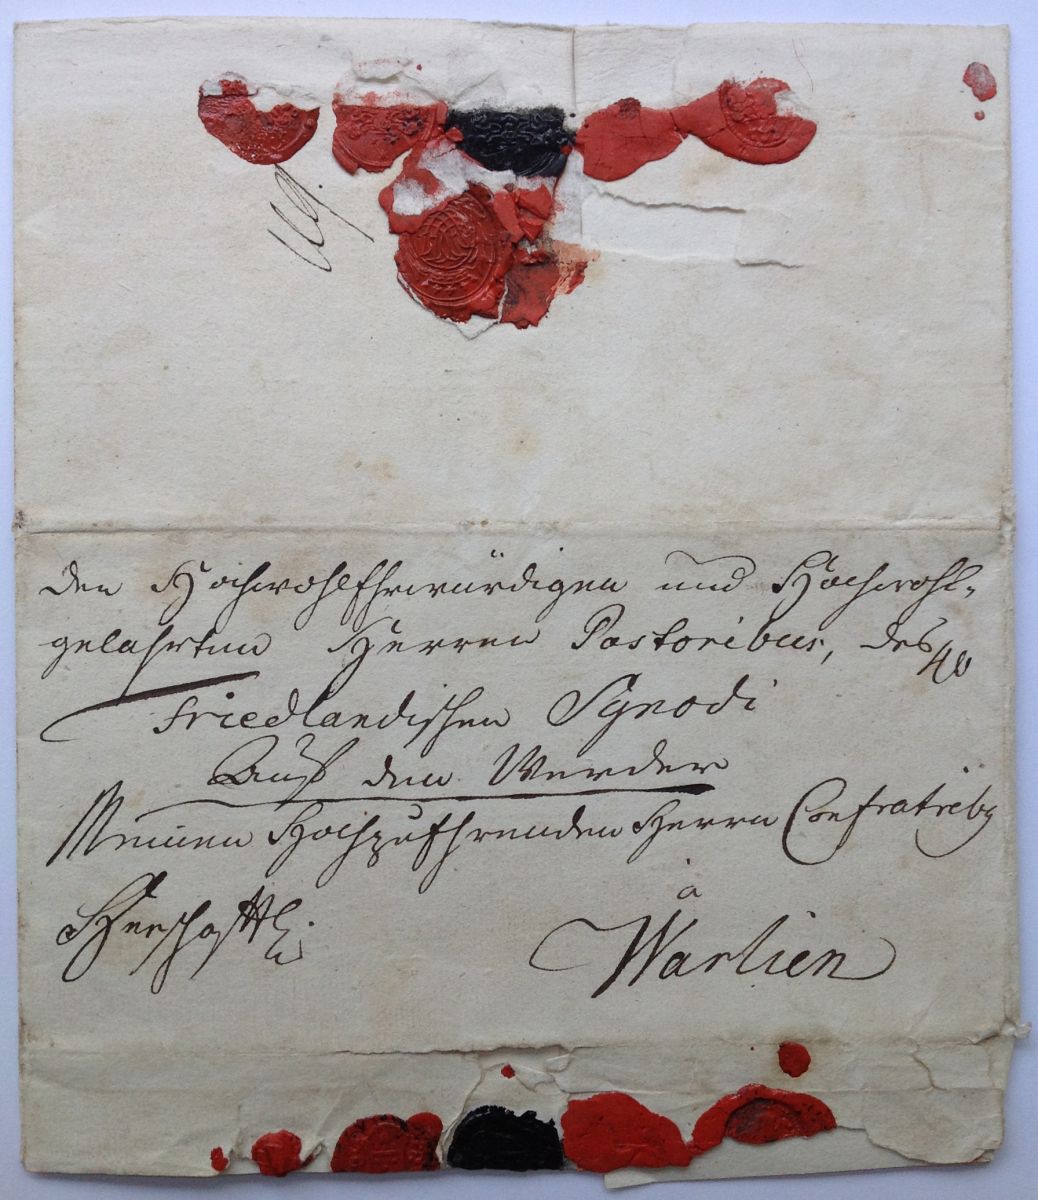 Den Hochwohlehrwürdigen und Hochwohl-
gelahrten Herren Pastoribus, des
Friedlandischen Synodi
Auf dem Werder
Meinen Hochzuehrenden Herrn Confratribq
à
Warlien